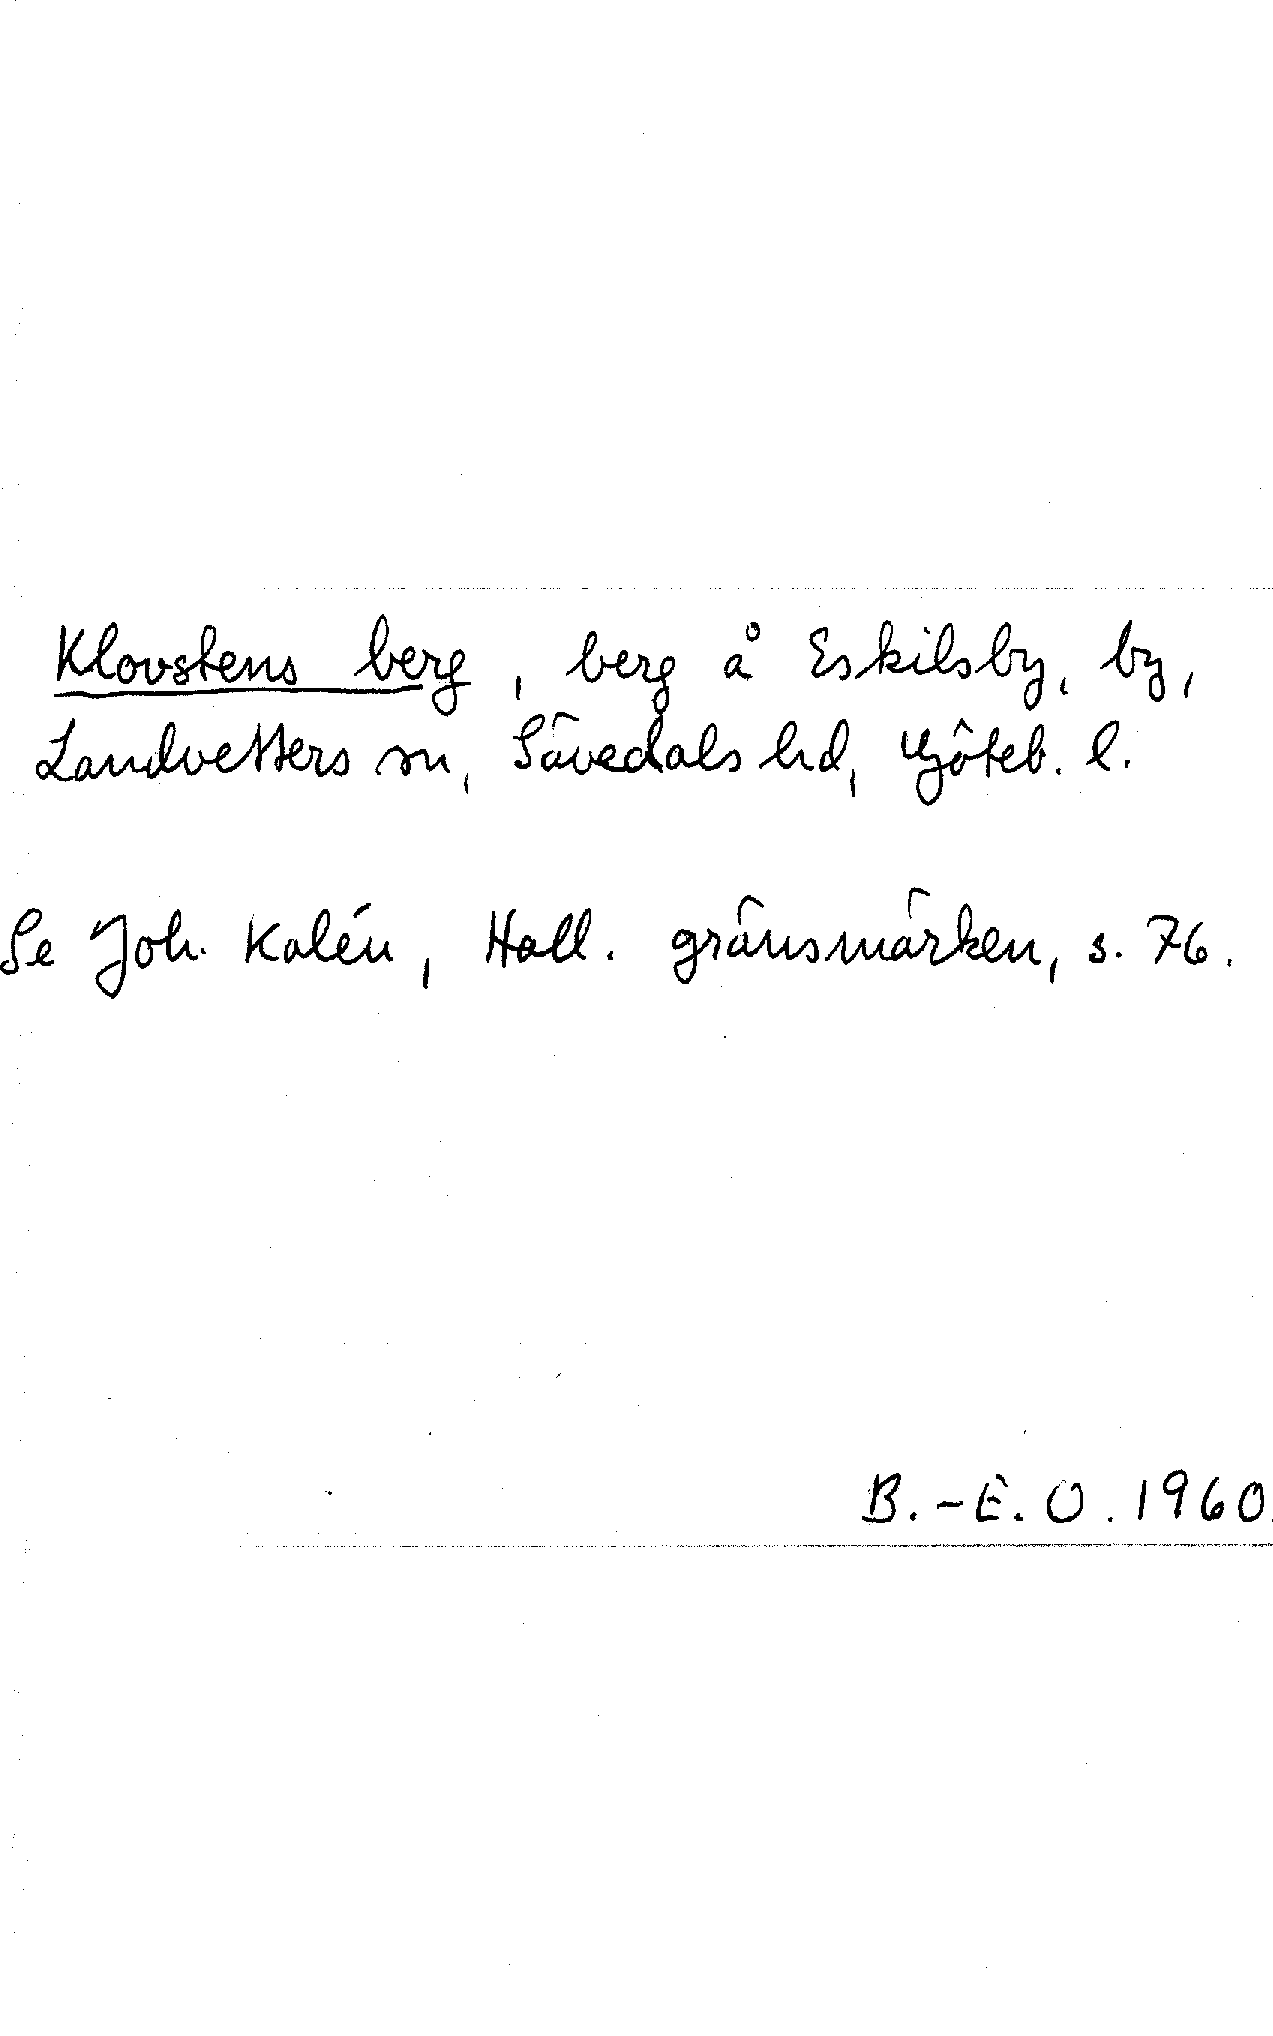 Klovstens berg, berg å Eskilsby, by,
Landvetters sn, Sävedals hd, Göteb. l.
Se Joh. Kalén, Hall. gränsmärken, s. 76.
B.-E. O. 1960.